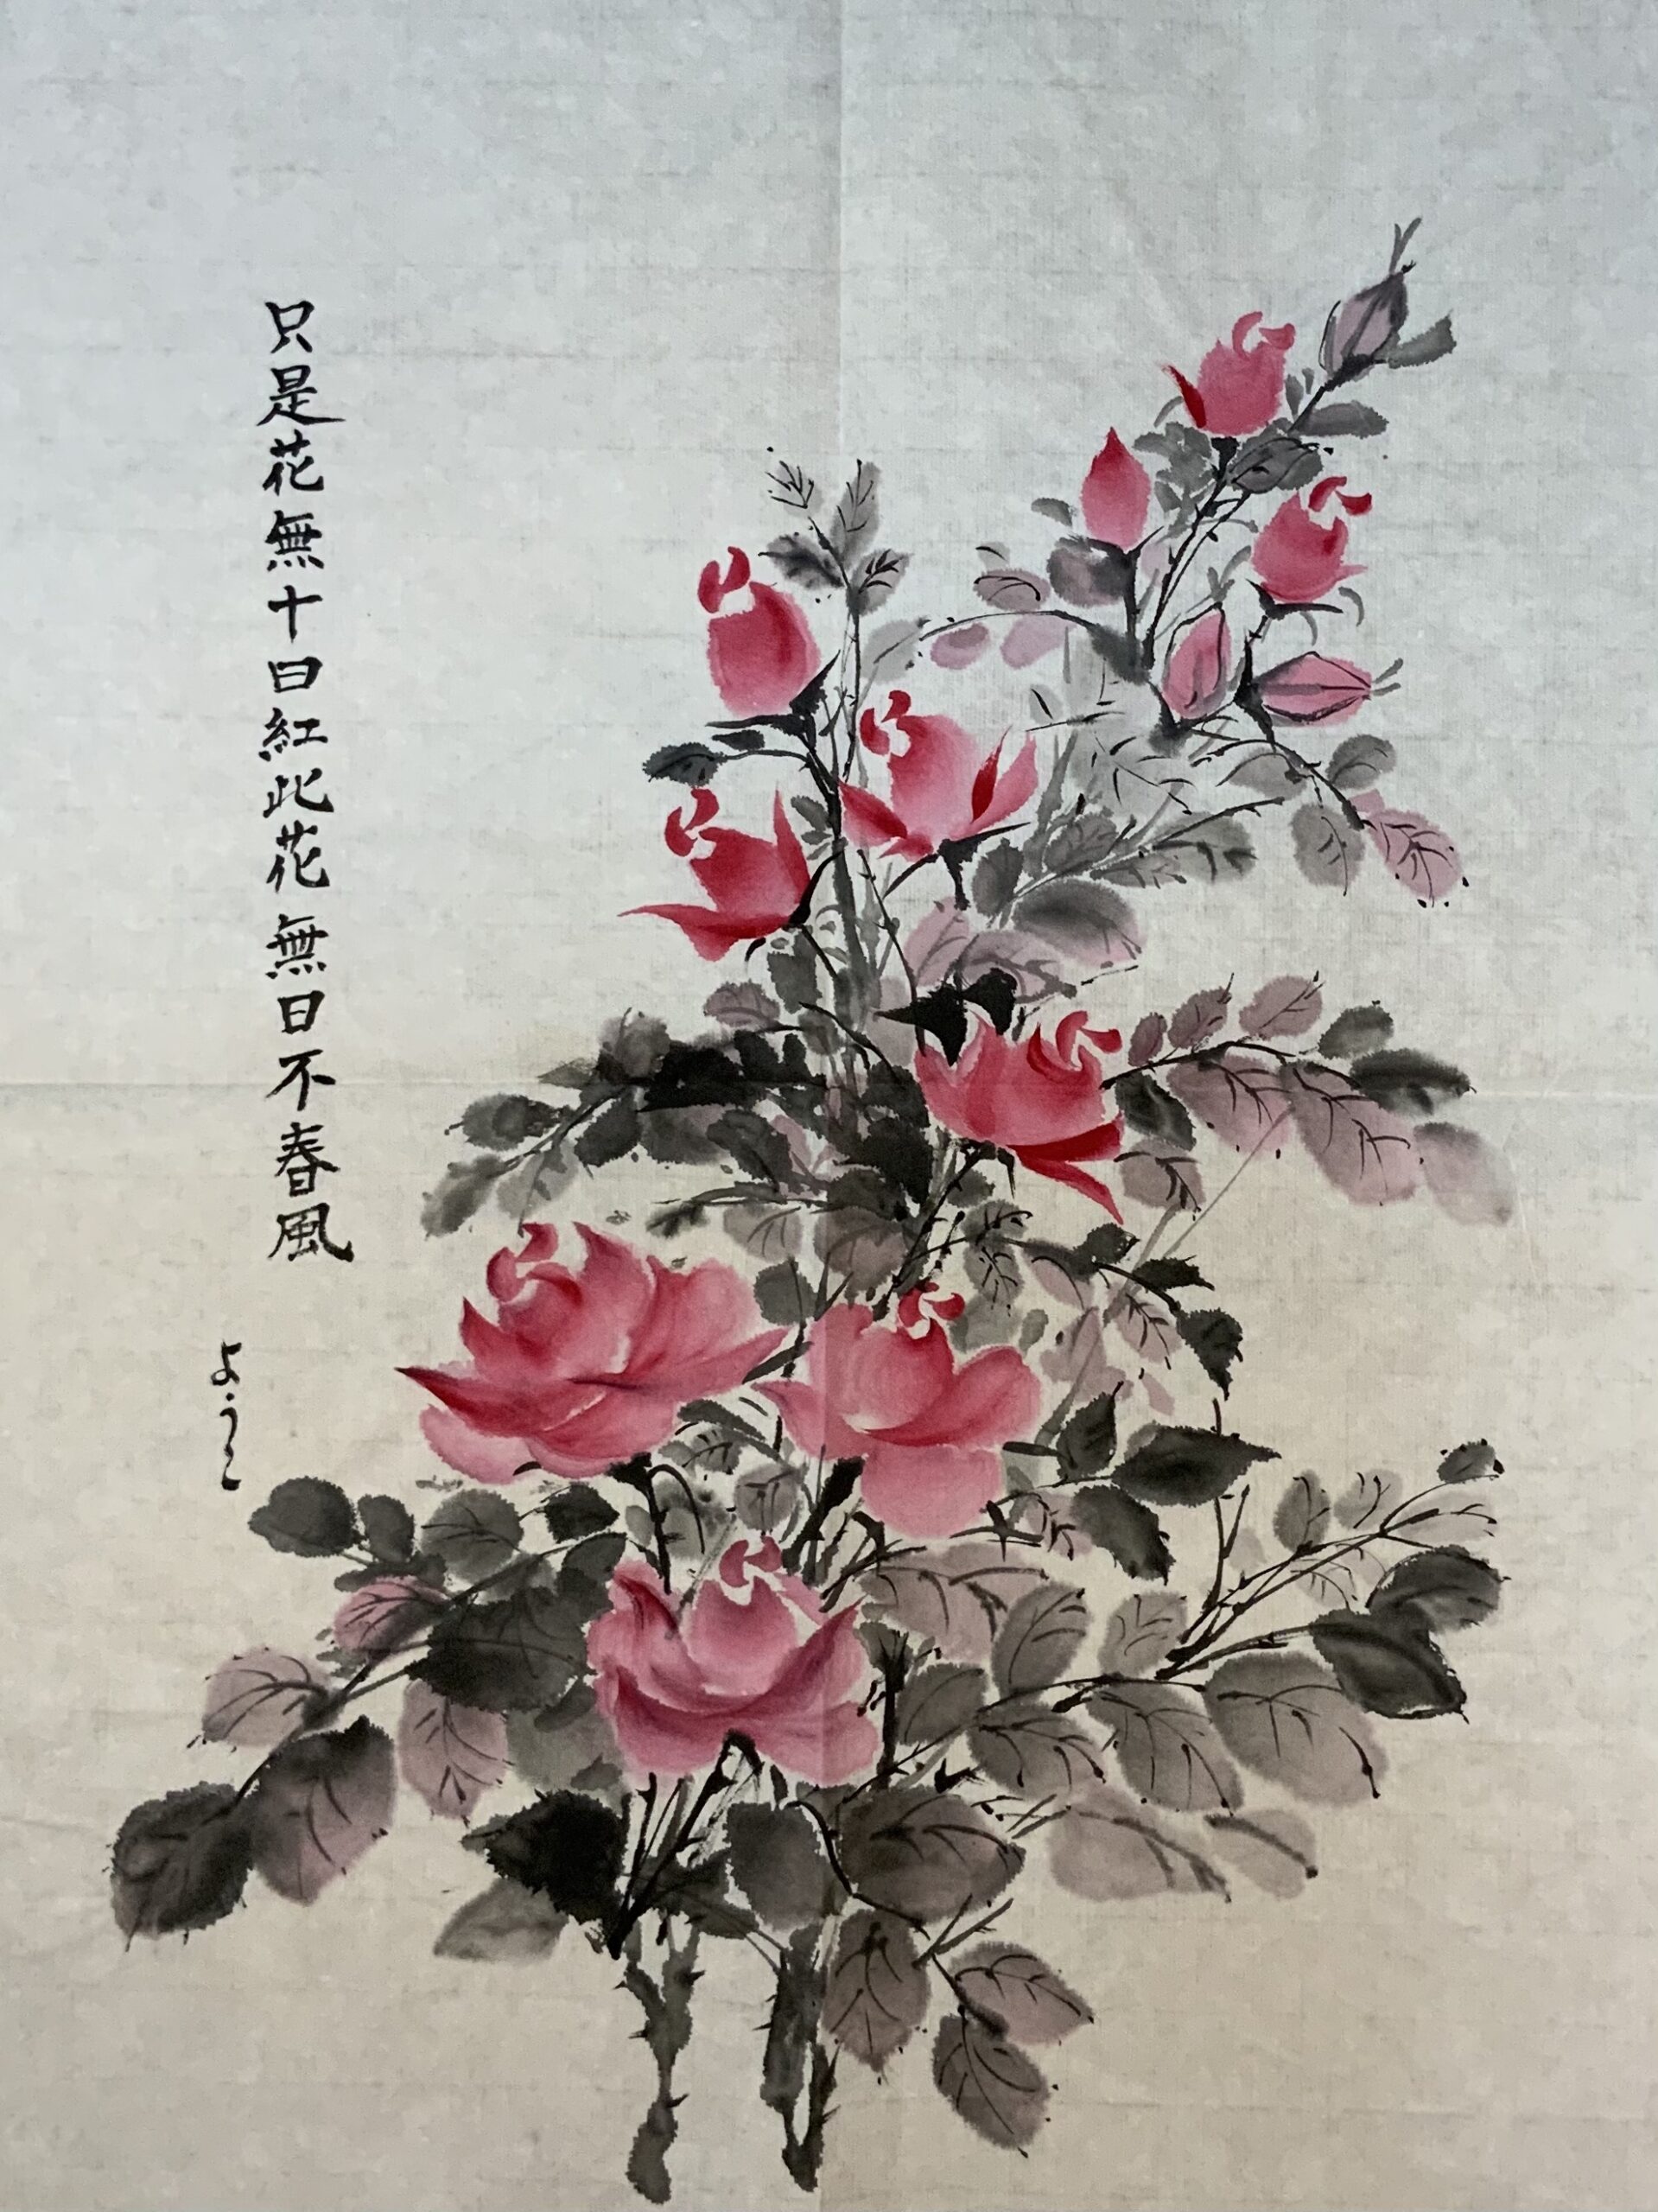 只是花無十日紅此花無日不春風